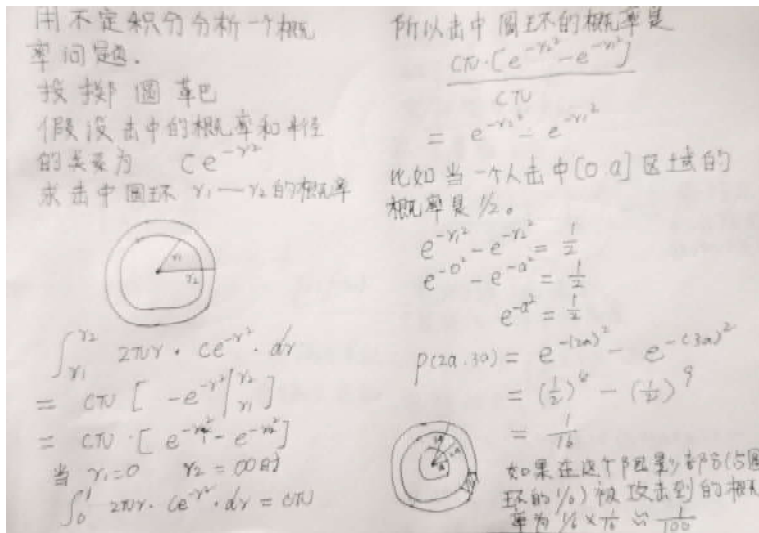 用不定积分分析一个概
率问题.
投掷圆靶
假设击中的概率和半径
的关系为 Ce^{-r²}
求击中圆环 r₁—r₂的概率
r₁
r₂
∫_{r₁}^{r₂} 2πr · Ce^{-r²} · dr
= Cπ [ -e^{-r²} |_{r₁}^{r₂} ]
= Cπ · [ e^{-r₁²} - e^{-r₂²} ]
当 r₁=0 r₂=00时
∫₀¹ 2πr · Ce^{-r²} · dr = Cπ
所以击中圆环的概率是
Cπ·[e^{-r₂²} - e^{-r₁²}]
Cπ
= e^{-r₂²} - e^{-r₁²}
比如当一个人击中[0 a]区域的
概率是1/2。
e^{-r₁²} - e^{-r₂²} = 1/2
e^{-0²} - e^{-a²} = 1/2
e^{-a²} = 1/2
P(2a.3a) = e^{-(2a)²} - e^{-(3a)²}
= (1/2)⁴ - (1/2)⁹
= 1/16
如果在这个阴影部分(占圆
环的1/6)被攻击到的概
率为 1/6 × 1/16 ≈ 1/100